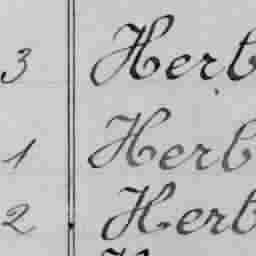 3 Herb
1 Herb
2 Herb